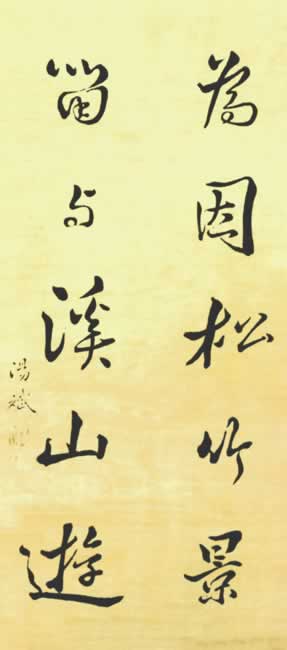 為因松竹景
留与溪山遊
湯斌